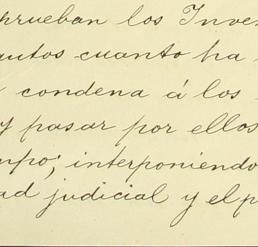 prueban los Inven
autos cuanto ha
condena á los
y pasar por ellos
mpo; interponiendo
ad judicial y el p